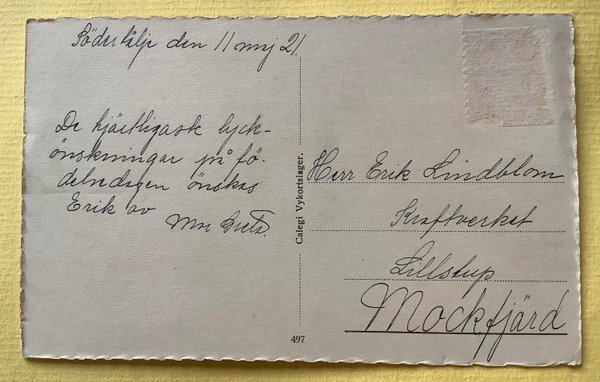 Södertälje den 11 maj 21
De hjärtligaste lyck-
önskningar på fö-
delsedagen önskas
Erik av
Greta.
Calegi Vykortslager.
Herr Erik Lindblom
Kraftverket
Lillstup
Mockfjärd
497